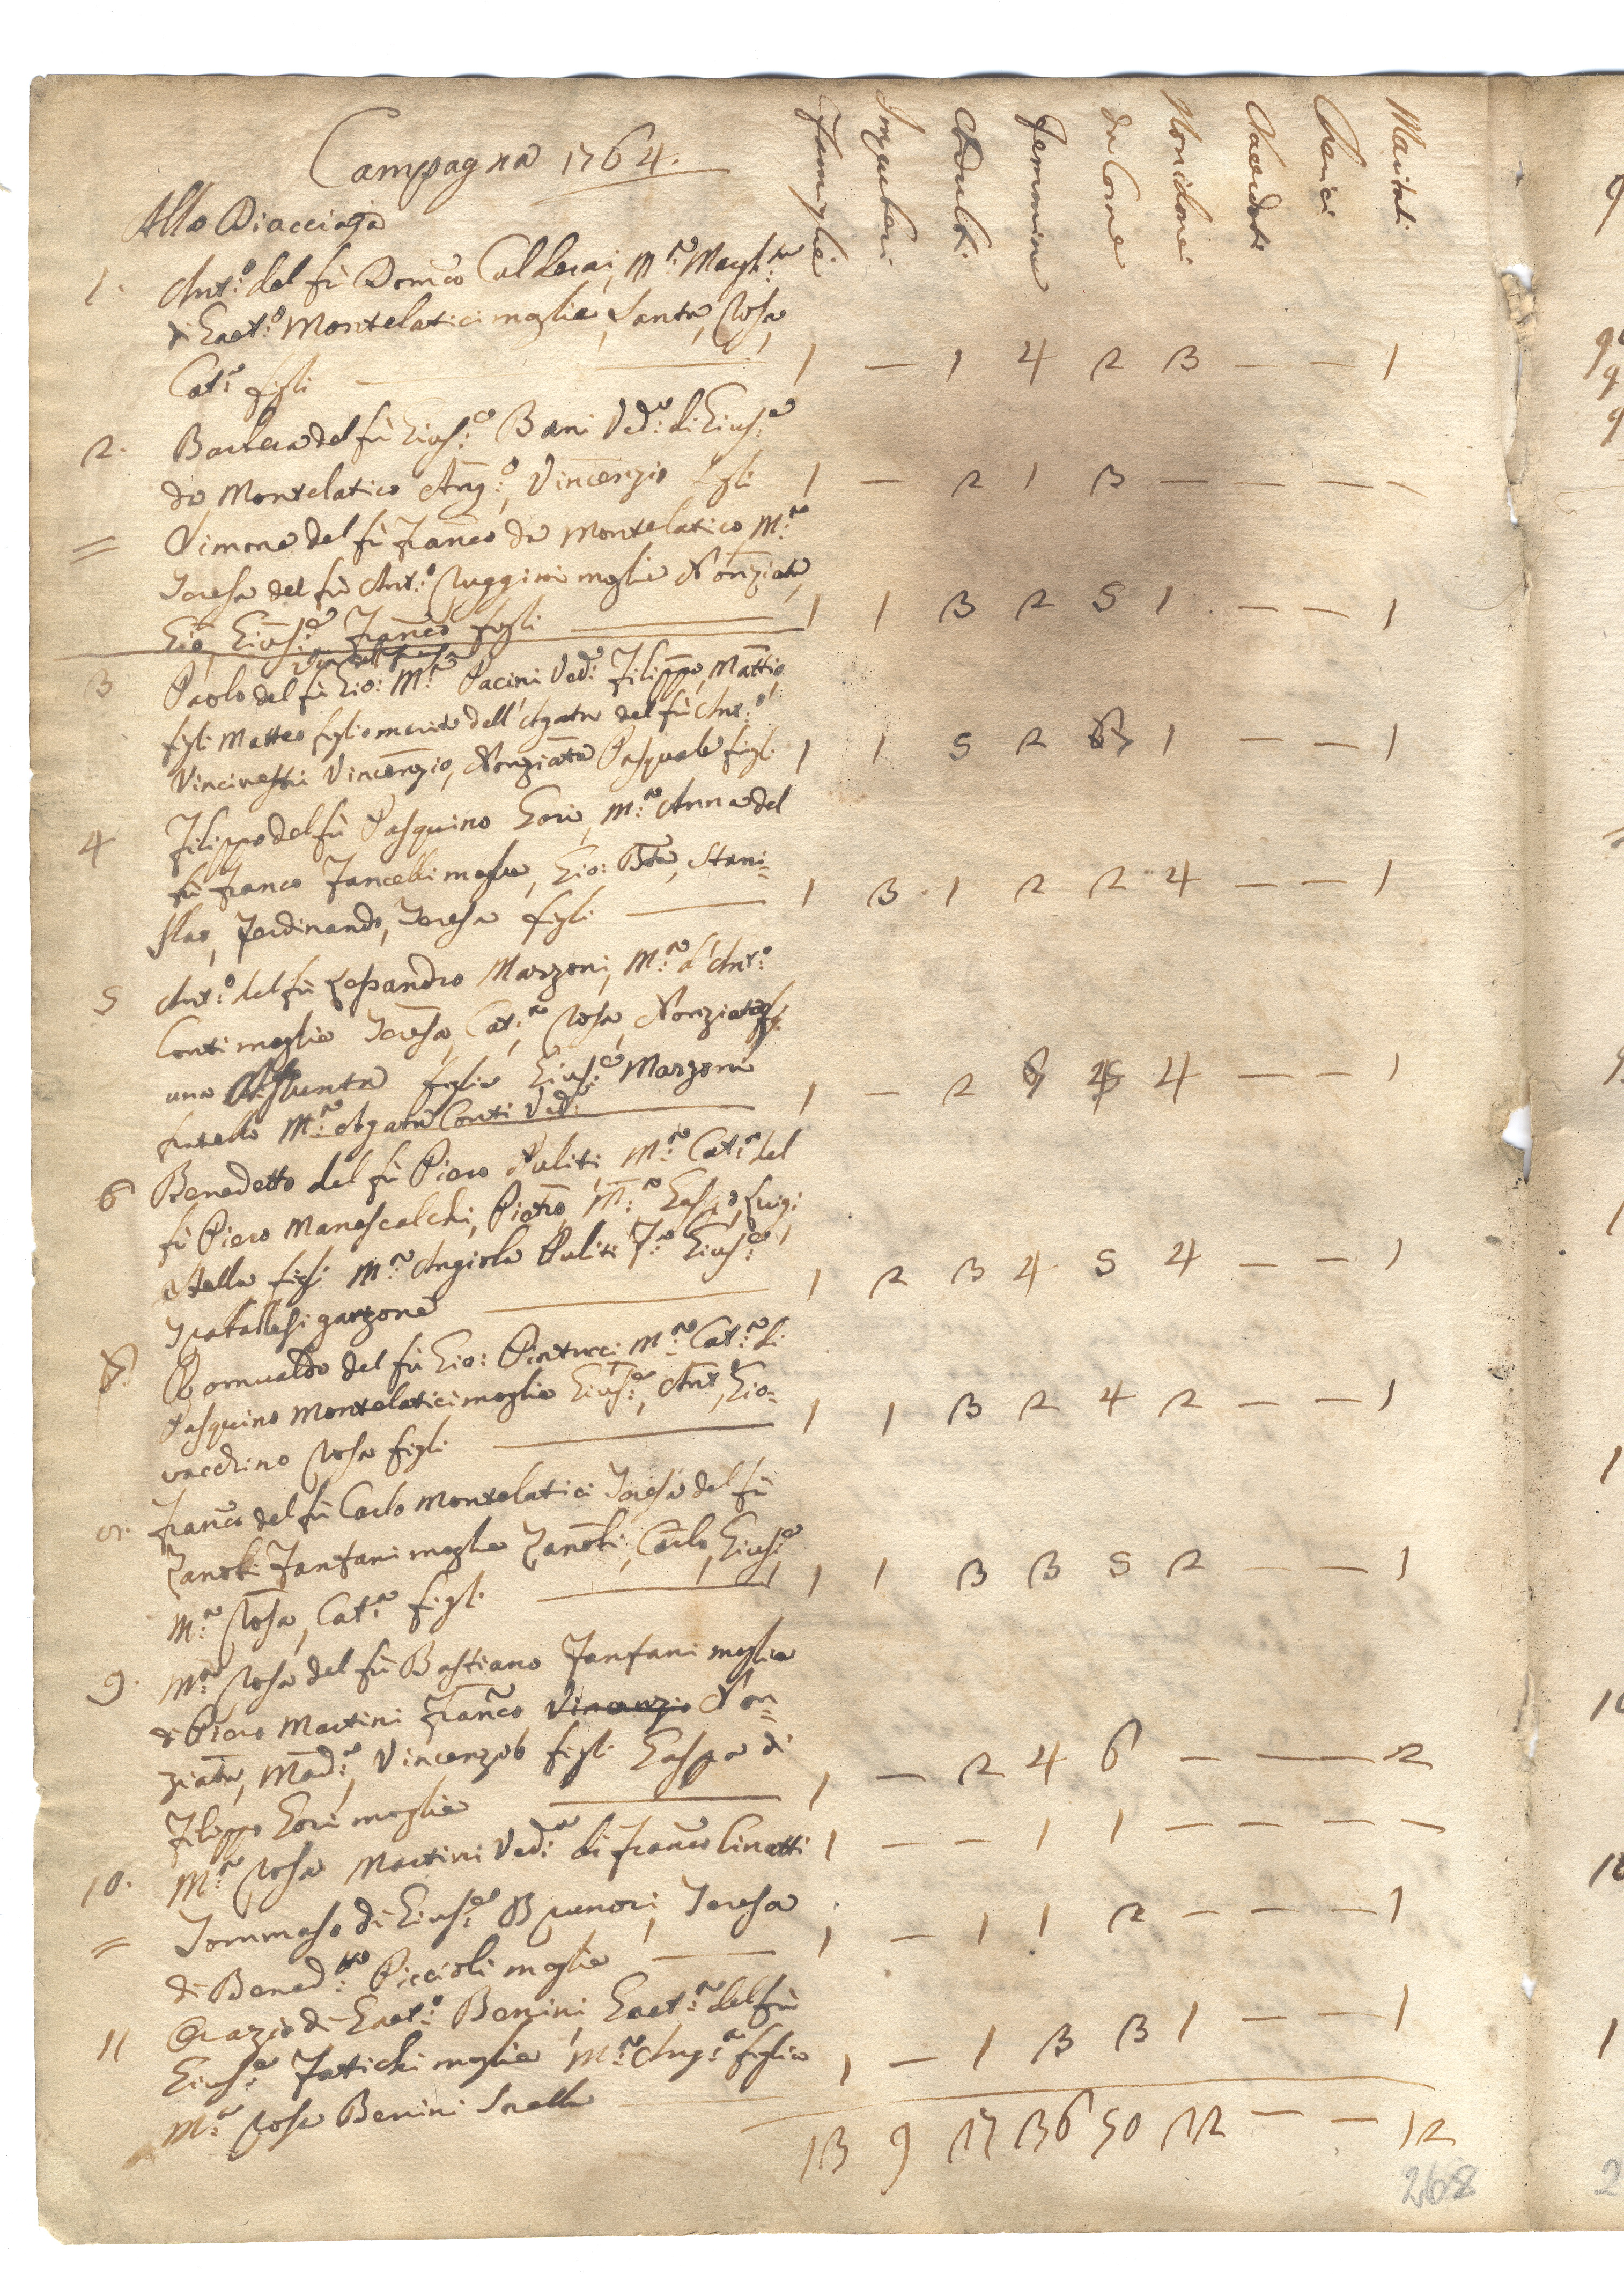 Campagna 1764.
Alla Diacciaja
Famiglie Impuberi Adulti Femmine da Com.e Non da Com.e Sacerdoti Cherici Maritati
1. Ant:o del fù Dom:co Calderai, M:a Margh:ta
di Gaet:o Montelatici moglie, Santa, Rosa,
Cat:a figli — 1 — 1 4 2 3 — — 1
2. Barbera del fù Gius:e Bani Ved:a di Gius:e
da Montelatico Ang:o, Vincenzio figli 1 — 2 1 3 — — — —
= Simone del fù Franco da Montelatico, M:a
Teresa del fù Ant:o Ruggini moglie Nonziata,
Gio, Gius:e Franco figli — 1 1 3 2 5 1 — — 1
3 Paolo del fù Gio: M:a Pacini Ved:o Filippo, Mattio,
figli Matteo figlio marito dell'Agata del fù Ant:o
Vincinesi Vincenzio, Nonziata Pasquale figli 1 1 5 2 1 — — 1
4 Filippo del fù Pasquino Gori, M:a Anna del
fù Franco Fancelli moglie, Gio: Bta, Stani=
slao, Ferdinando, Teresa figli — 1 3 1 2 2 4 — — 1
5 Ant:o del fù Lessandro Marzoni, M:a d'Ant:o
Conti moglie Teresa, Cat:a, Rosa, Nonziata
una Assunta figlie Gius:e Marzoni
fratello M:a Agata Conti Ved: — 1 — 2 4 — — 1
6 Benedetto del fù Piero Puliti, M:a Cat:a del
fù Piero Manescalchi, Pietro, M:a Gasp:o, Luigi
Stella figli M:a Angiola Puliti Gius:e
garzone — 1 2 3 4 5 4 — — 1
Romualdo del fù Gio: Pintucci M:a Cat:a di
Pasquino Montelatici moglie Gius:e, Ant:o, Gio=
vacchino Rosa figli — 1 1 3 2 4 2 — — 1
Franco del fù Carlo Montelatici Teresa del fù
Zanobi Fanfani moglie Zanobi, Carlo, Gius:e
M:a Rosa, Cat:a figli — 1 1 3 3 5 2 — — 1
9. M:a Rosa del fù Bastiano Fanfani moglie
di Piero Martini Franco Vincenzio Non=
ziata, Mad:a, Vincenzo figli Gaspa di
Filippo Gori moglie — 1 — 2 4 6 — — — 2
10. M:a Rosa Martini Ved:a di Franco Cinatti 1 — — 1 1 — — — —
= Tommaso di Gius:e Brunori, Teresa
di Bened:tto Piccioli moglie — 1 — 1 1 2 — — — 1
11 Orazio di Gaet:o Benini, Gaet:a del fù
Gius:e Fatichi moglie M:a Ang:a figlia
M:a Rosa Benini Sorella — 1 — 1 3 3 1 — — 1
13 9 27 36 50 22 — — 12
268